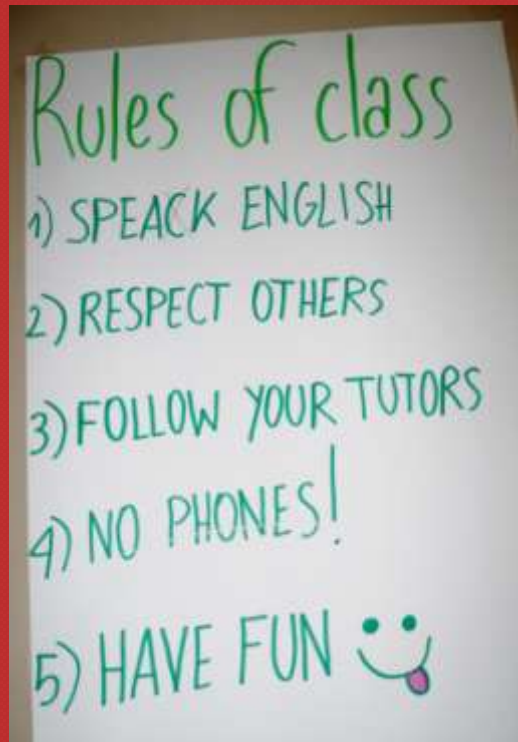 Rules of class
1) SPEACK ENGLISH
2) RESPECT OTHERS
3) FOLLOW YOUR TUTORS
4) NO PHONES!
5) HAVE FUN